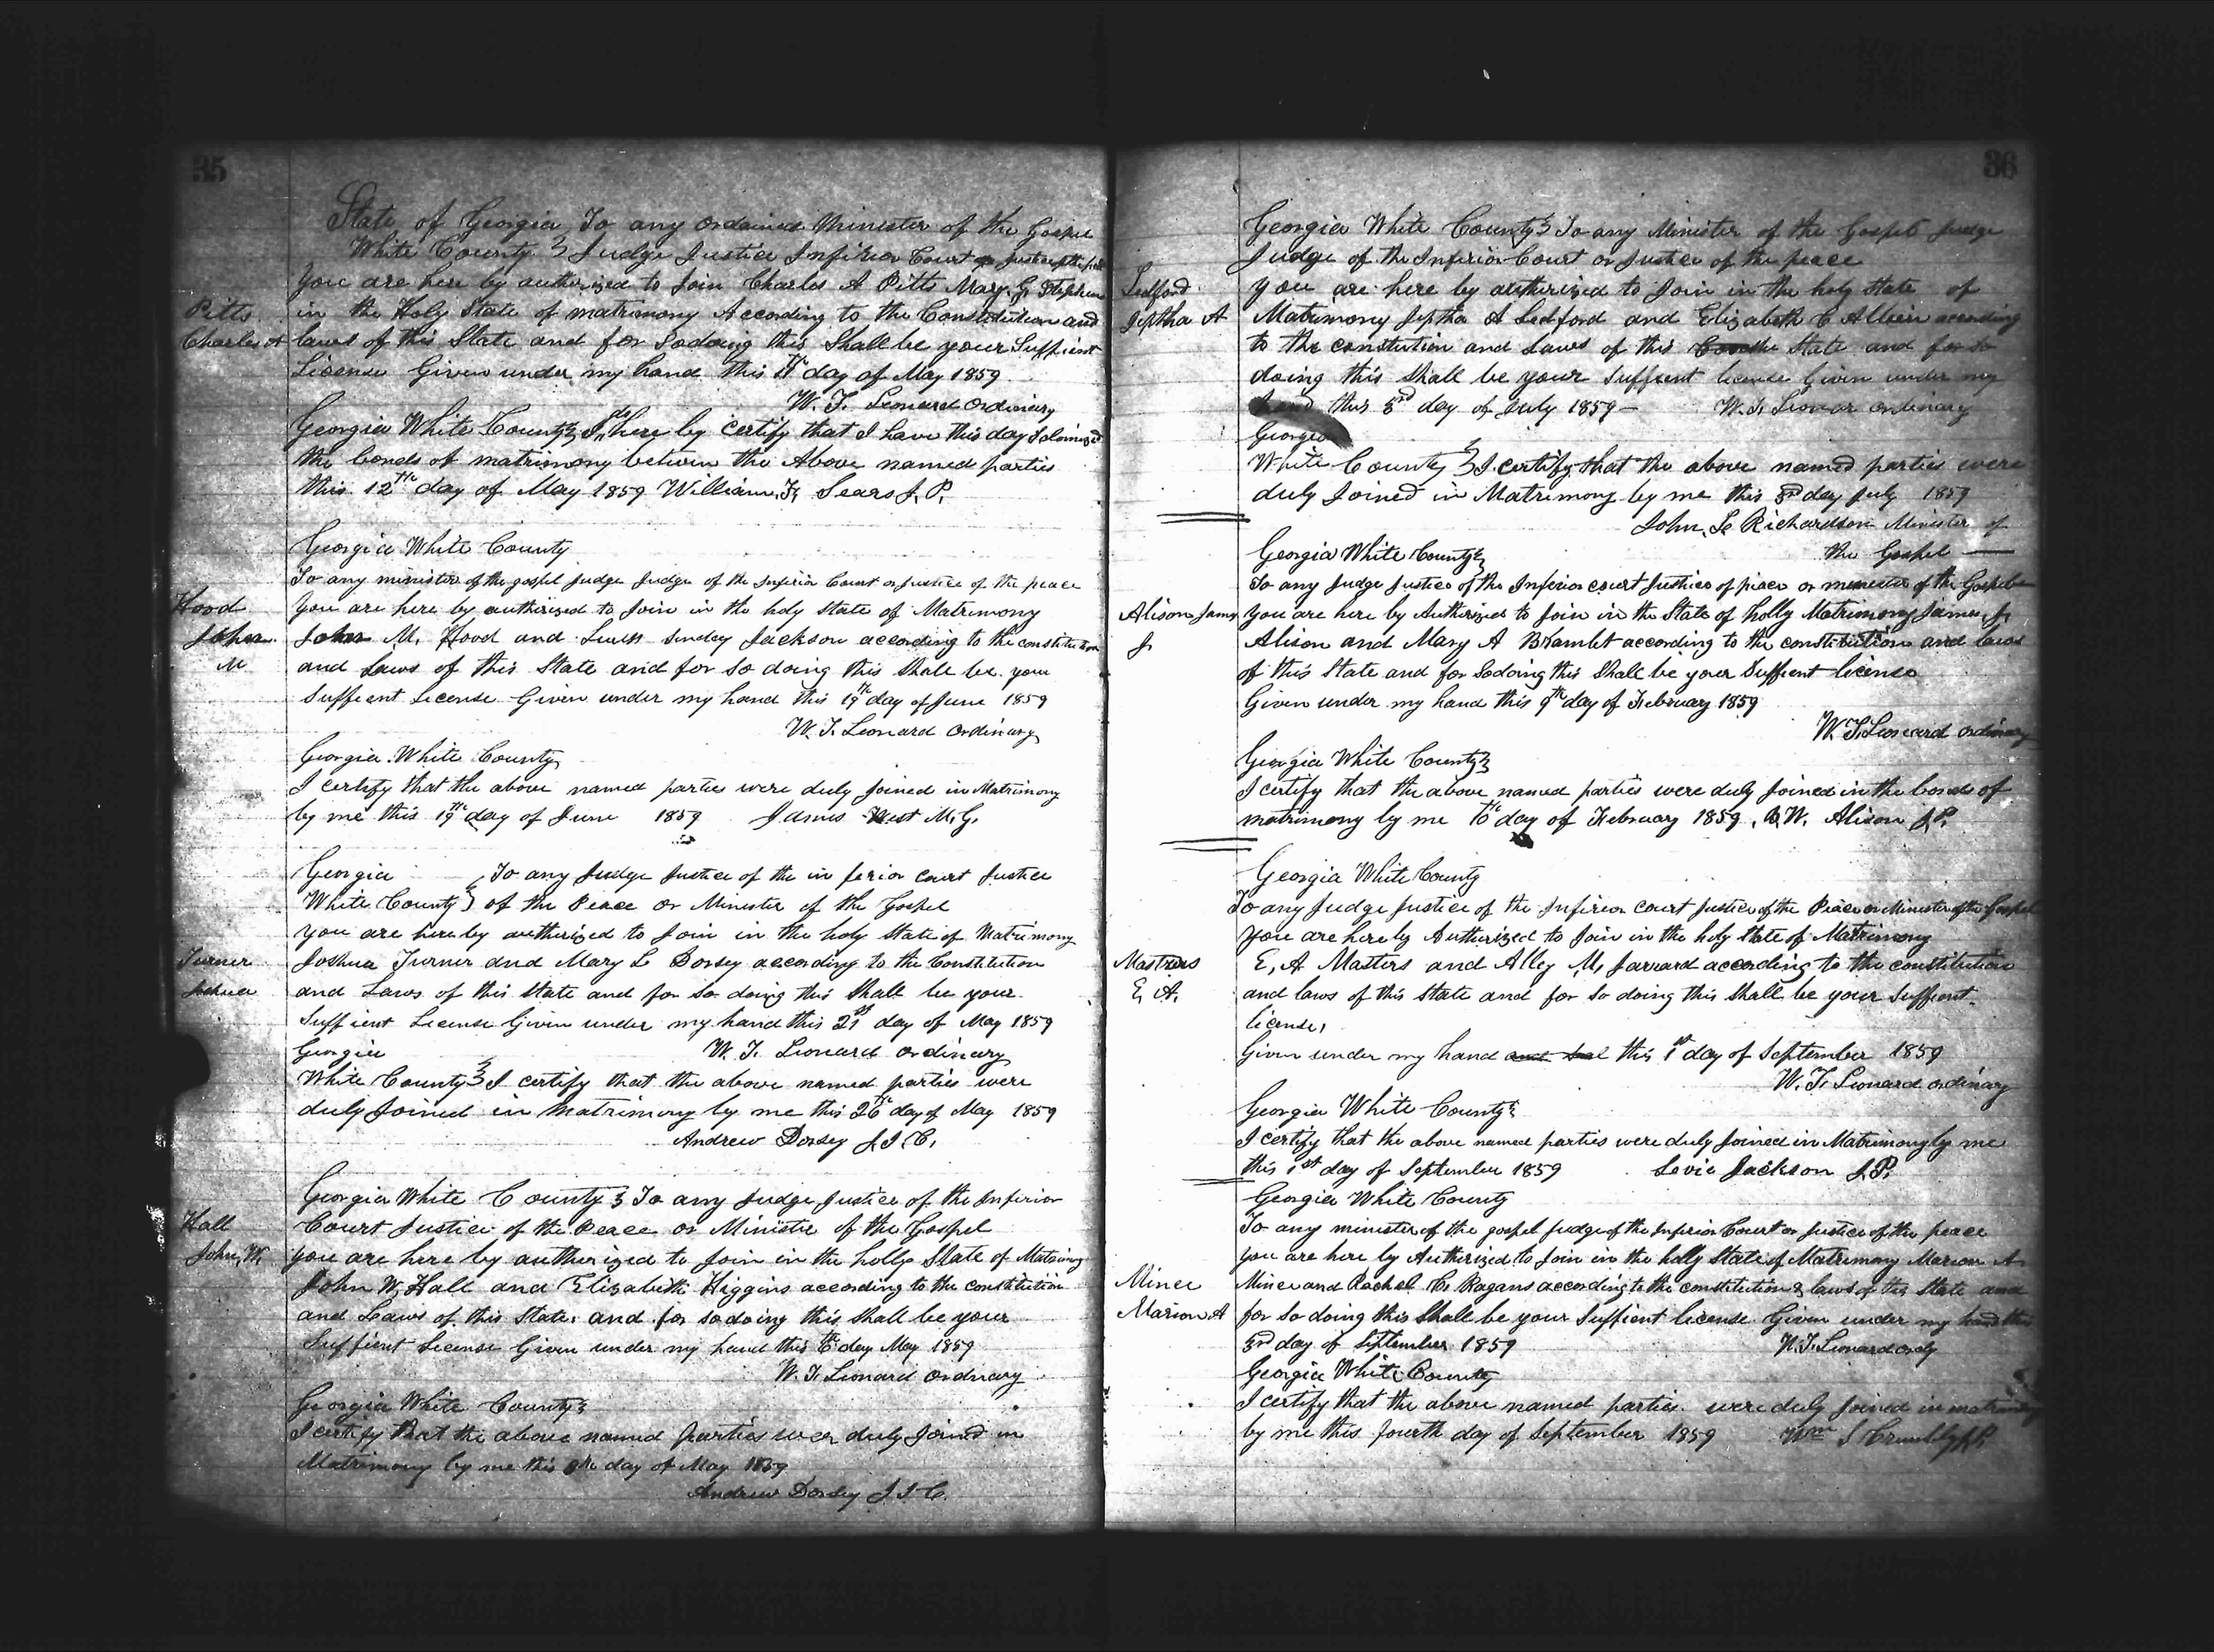 35
State of Georgia To any ordained Minister of the Gospel
White County } Judge Justice Inferior Court or Justice of the peace
You are here by authorized to Join Charles A Pitts Mary G. Stephens
Pitts in the Holy State of matrimony According to the Constitution and
Charles A laws of this State and for So doing this Shall be your Suffient
License Given under my hand this day of May 1859
W. F. Leonard Ordinary
Georgia White County } I do here by certify that I have this day Solemnized
the bonds of matrimony between the Above named parties
this 12th day of May 1859 William F. Sears J. P.
Georgia White County
To any minister of the gospel Judge Judge of the Inferior Court or Justice of the peace
Hood You are here by authorized to Join in the holy State of Matrimony
John John M. Hood and Jackson according to the constitution
M and Laws of this State and for So doing this Shall be your
Suffient License Given under my hand this 19th day of June 1859
W. F. Leonard Ordinary
Georgia White County
I certify that the above named parties were duly Joined in Matrimony
by me this 19th day of June 1859 James West M. G.
Georgia } To any Judge Justice of the in ferior court Justice
White County } of the Peace or Minister of the Gospel
You are hereby authorized to Join in the holy State of Matrimony
Turner Joshua Turner and Mary L Dorsey according to the Constitution
Joshua and Laws of this State and for So doing this Shall be your
Suffient License Given under my hand this 21st day of May 1859
Georgia W. F. Leonard ordinary
White County } I certify that the above named parties were
duly Joined in Matrimony by me this 26th day of May 1859
Andrew Dorsey J. I. C.
Georgia White County } To any Judge Justice of the Inferior
Hall Court Justice of the Peace or Ministir of the Gospel
John, W. you are here by authorized to Join in the holly State of Matrimony
John W. Hall and Elizabeth Higgins according to the constitution
and Laws of this State and for so doing this Shall be your
Suffient License Given under my hand this 6th day May 1859
W. F. Leonard Ordinary
Georgia White County }
I certify that the above named parties were duly Joined in
Matrimony by me this day of May 1859
Andrew Dorsey J I C.
36
Georgia White County } To any Minister of the Gospel Judge
Judge of the Inferior Court or Justice of the peace
Ledford you are here by authorized to Join in the holy State of
Jeptha A Matrimony Jeptha A Ledford and Elizabeth C according
to the constution and Laws of this State and for so
doing this Shall be your Suffient license Given under my
hand this 3rd day of July 1859 — W. F. Leonor ordinary
Georgia
White County } I certify that the above named parties were
duly Joined in Matrimony by me this 3rd day July 1859
John L Richardson Minister of
Georgia White County } the Gospel —
To any Judge Justice of the Inferior court Justice of piece or minester of the Gospel
Alison James You are here by Authorized to Join in the State of holly Matrimony James J.
J. Alison and Mary A Bramlet according to the constitution and laws
of this State and for So doing this Shall be your Suffient license
Given under my hand this 9th day of February 1859
W. F. Leonard ordinary
Georgia White County }
I certify that the above named parties were duly Joined in the bonds of
matrimony by me 10th day of February 1859. B. W. Alison J. P.
Georgia White County
To any Judge Justice of the Inferior court Justice of the Peace or Minister of the Gospel
You are hereby Authorized to Join in the holy State of Matrimony
Mastrers E, A Masters and Alley M, Jarrard according to the constitution
E, A. and laws of this State and for so doing this Shall be your Suffient
license,
Given under my hand and Seal this 1st day of September 1859
W. F. Leonard ordinary
Georgia White County }
I certify that the above named parties were duly Joined in Matrimony by me
this 1st day of September 1859 Levie Jackson J. P.
Georgia White County
To any minister of the gospel Judge of the Inferior Court or Justice of the peace
You are here by Authorized to Join in the holy State of Matrimony Marion A
Minee Minee and Rachel C. Ragans according to the constitution & laws of this State and
Marion A for so doing this Shall be your Suffient license Given under my hand this
3rd day of September 1859 W. F. Leonard ordy
Georgia White County
I certify that the above named parties were duly Joined in matrimony
by me this fourth day of September 1859 Wm S Crumbly J. P.